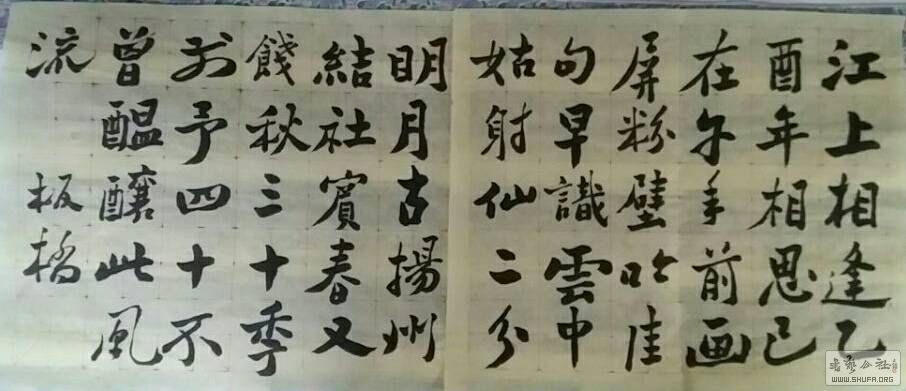 江上相逢乙
酉年相思已
在尔手前画
屏粉壁吟佳
句早識雲中
姑射仙二分
明月古揚州
結社賓春又
餞秋三十季
别予四十不
曾醖釀此風
流
板橋
WWW.SHUFA.ORG